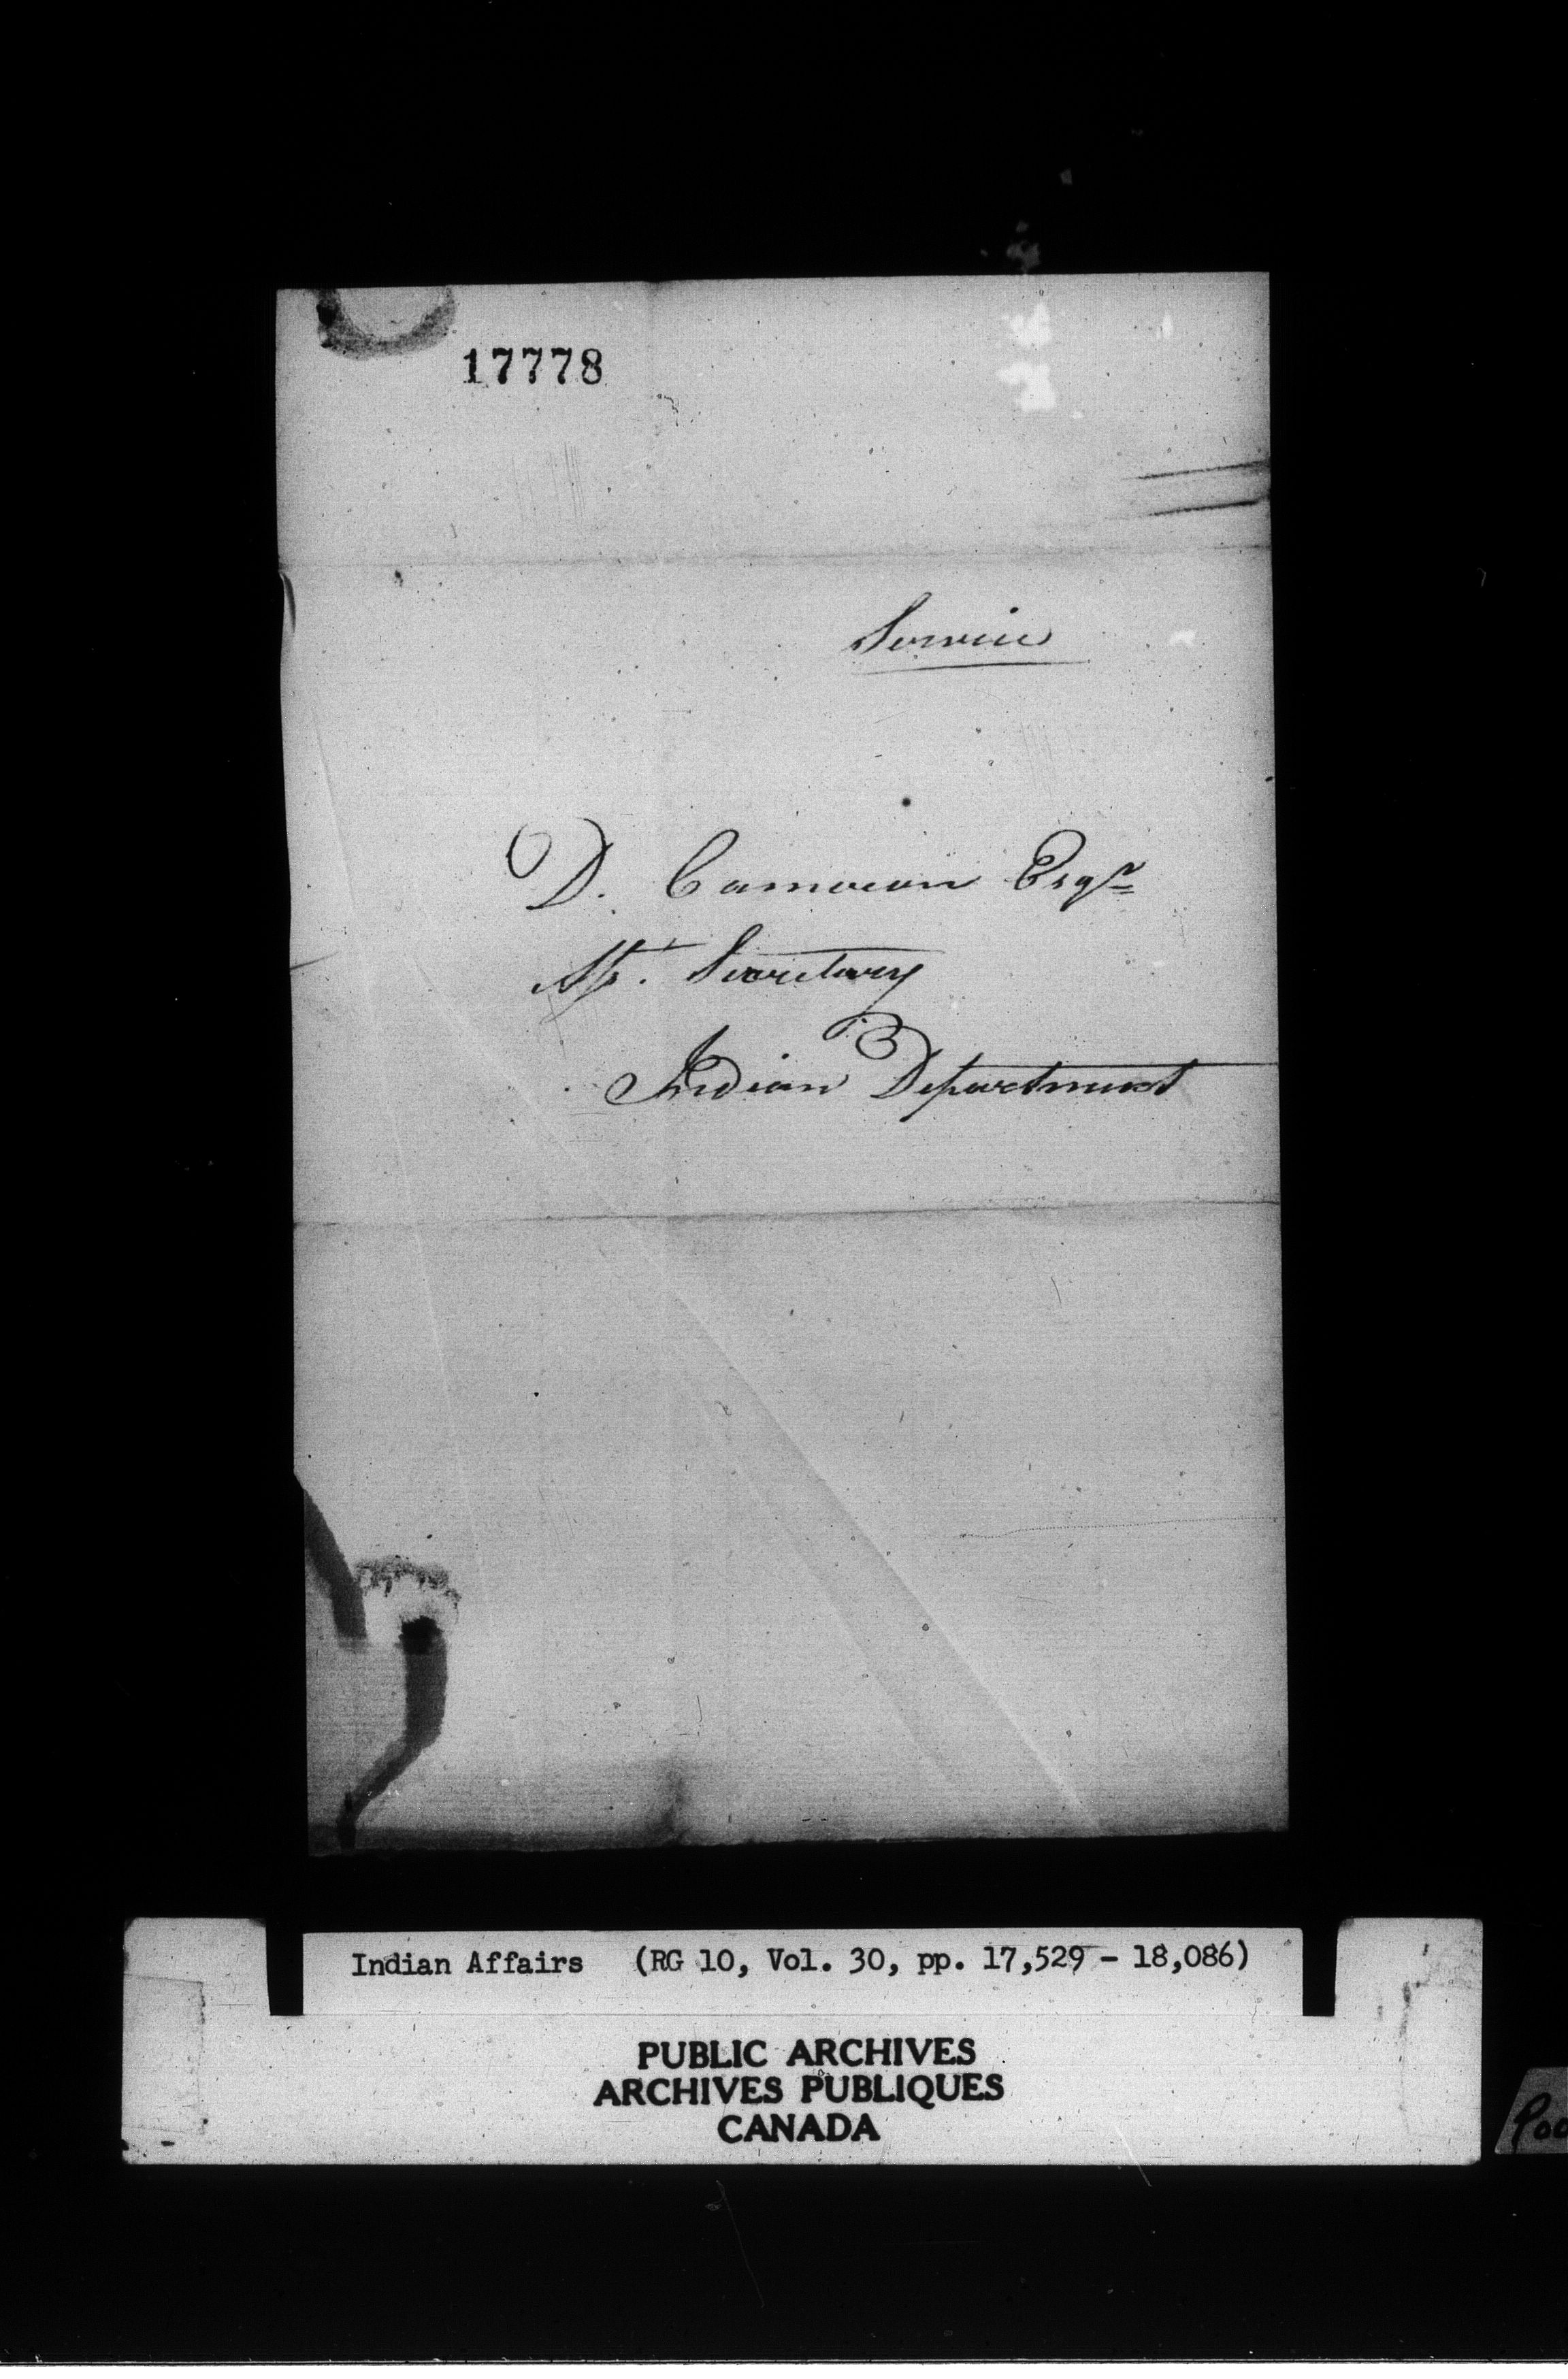 17778
Service
D. Cameron Esqr
Secretary
Indian Department
Indian Affairs (RG 10, Vol. 30, pp. 17,529 - 18,086)
PUBLIC ARCHIVES
ARCHIVES PUBLIQUES
CANADA